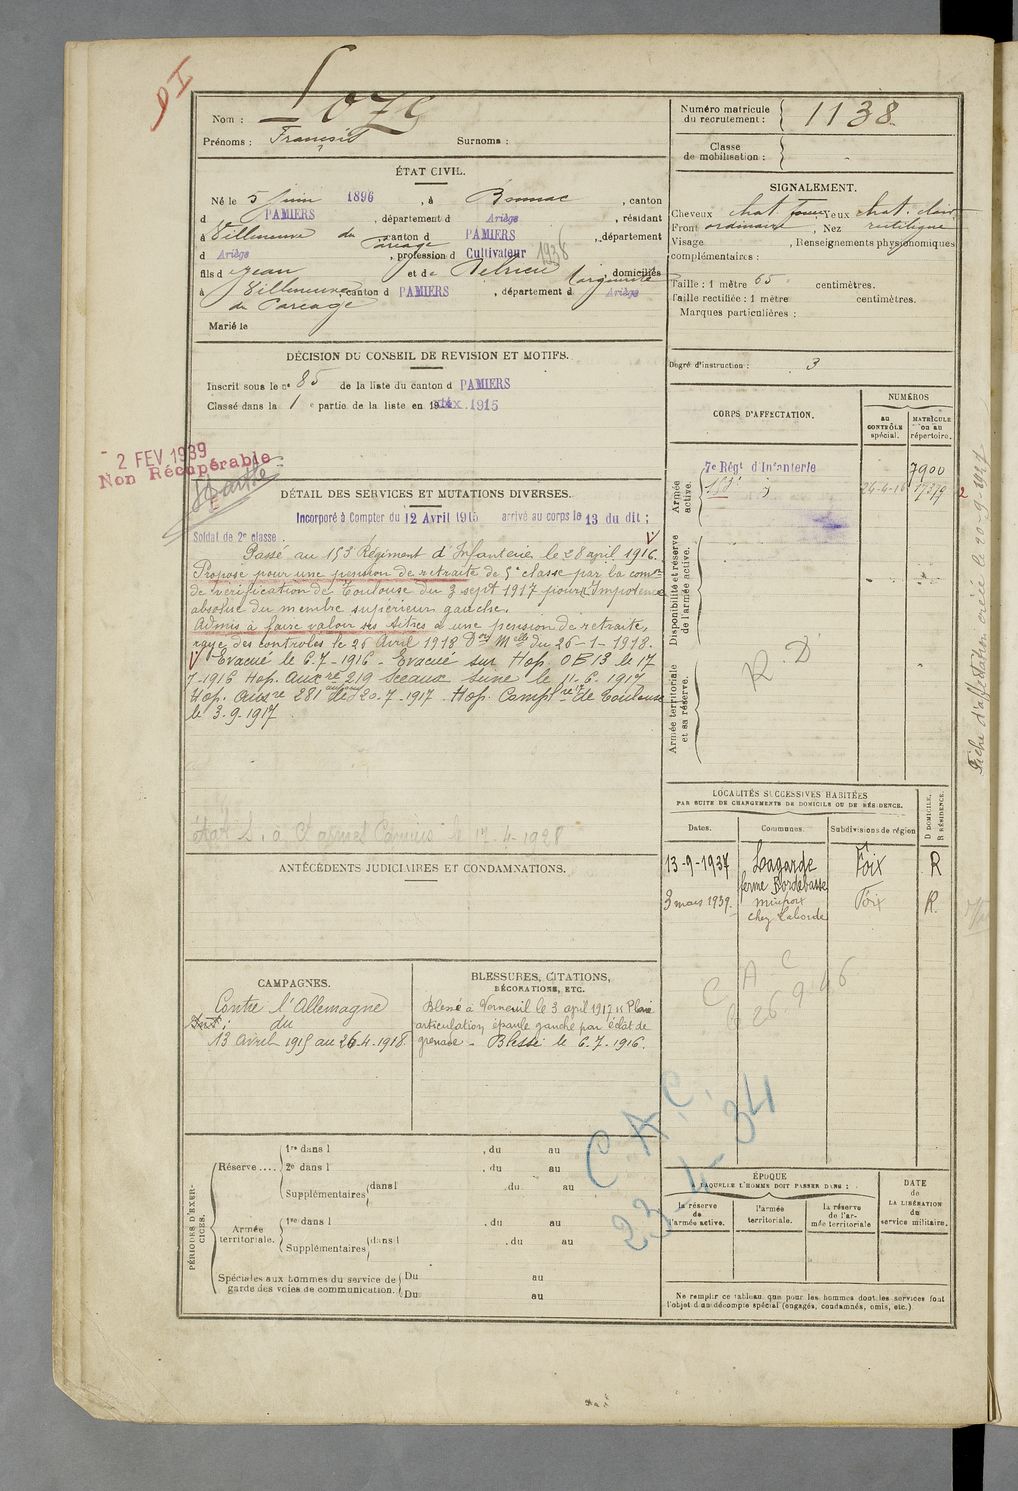 Nom : Loze
Prénoms : François Surnoms :
Numéro matricule du recrutement : 1138
Classe de mobilisation : -
ÉTAT CIVIL.
Né le 5 juin 1896, à Bonnac, canton
d PAMIERS, département d Ariège, résidant
à Villeneuve du Paréage canton d PAMIERS, département
d Ariège, profession d Cultivateur 1938
fils d Jean et de Delrieu Marguerite, domiciliés
à Villeneuve du Pareage, canton d PAMIERS, département d Ariège
Marié le
SIGNALEMENT.
Cheveux chat foncé Yeux chat. clair
Front ordinaire, Nez rectiligne
Visage , Renseignements physionomiques
complémentaires :
Taille : 1 mètre 65 centimètres.
Taille rectifiée : 1 mètre centimètres.
Marques particulières :
Degré d'instruction : 3
DÉCISION DU CONSEIL DE REVISION ET MOTIFS.
Inscrit sous le n° 85 de la liste du canton d PAMIERS
Classé dans la 1 e partie de la liste en 19 1915
- 2 FEV 1939
Non Récupérable
DÉTAIL DES SERVICES ET MUTATIONS DIVERSES.
Incorporé à Compter du 12 Avril 1915 arrivé au corps le 13 du dit ;
Soldat de 2e classe
Passé au 153 Régiment d'Infanterie le 28 april 1916.
Proposé pour une pension de retraite de 5e classe par la comon
de vérification de Toulouse du 3 sept 1917 pour Impotence
absolue du membre supérieur gauche.
Admis à faire valoir ses titres à une pension de retraite,
rayé des controles le 26 Avril 1918 Don Melle du 26-1-1918.
Evacué le 6.7-1916 - Evacué sur Hop. OE 13 le 17
7-1916 Hop. Auxre 219 Sceaux Seine le 11.6.1917
Hop. Auxre 281 le 20.7-1917. Hop. Complre de Toulouse
le 3.9.1917
le 17-4-1928
ANTÉCÉDENTS JUDICIAIRES ET CONDAMNATIONS.
CAMPAGNES.
Contre l'Allemagne
du
13 avril 1915 au 26-4-1918
BLESSURES, CITATIONS,
DÉCORATIONS, ETC.
Blessé à Verneuil le 3 april 1917 " Plaie
articulation épaule gauche par éclat de
grenade - Blessé le 6.7.1916.
PÉRIODES D'EXERCICES.
Réserve....
1re dans l , du au
2e dans l , du au
Supplémentaires dans l , du au
Armée territoriale.
1re dans l , du au
Supplémentaires dans l , du au
Spéciales aux hommes du service de garde des voies de communication.
Du au
Du au
CORPS D'AFFECTATION.
NUMÉROS
AU CONTRÔLE spécial.
MATRICULE ou au répertoire.
Armée active.
7e Régt d'Infanterie 7900
153e 24-4-16 17379
Disponibilité et réserve de l'armée active.
Armée territoriale et sa réserve.
R. D
Fiche d'affectation créée le 20-9-1927
LOCALITÉS SUCCESSIVES HABITÉES
PAR SUITE DE CHANGEMENTS DE DOMICILE OU DE RÉSIDENCE.
Dates. Communes. Subdivisions de région D DOMICILE. R RÉSIDENCE.
13-9-1937 Lagarde ferme Bordebasse Foix R
3 mars 1939 Mirepoix chez Laborde Foix R.
C A C
26 9-46
C.A.C.
23-4-34
ÉPOQUE
A LAQUELLE L'HOMME DOIT PASSER DANS :
la réserve de l'armée active.
l'armée territoriale.
la réserve de l'armée territoriale
DATE de LA LIBÉRATION du service militaire.
Ne remplir ce tableau que pour les hommes dont les services font
l'objet d'un décompte spécial (engagés, condamnés, omis, etc.)